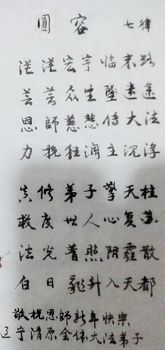 圆容 七律
茫茫宏宇临末路
芸芸众生坠迷途
恩師慈悲传大法
力挽狂澜立沉浮
真修弟子擎天柱
救度世人心复苏
法光普照阴霾散
白日飛升入天都
敬祝恩師新年快樂
辽宁清原全体大法弟子